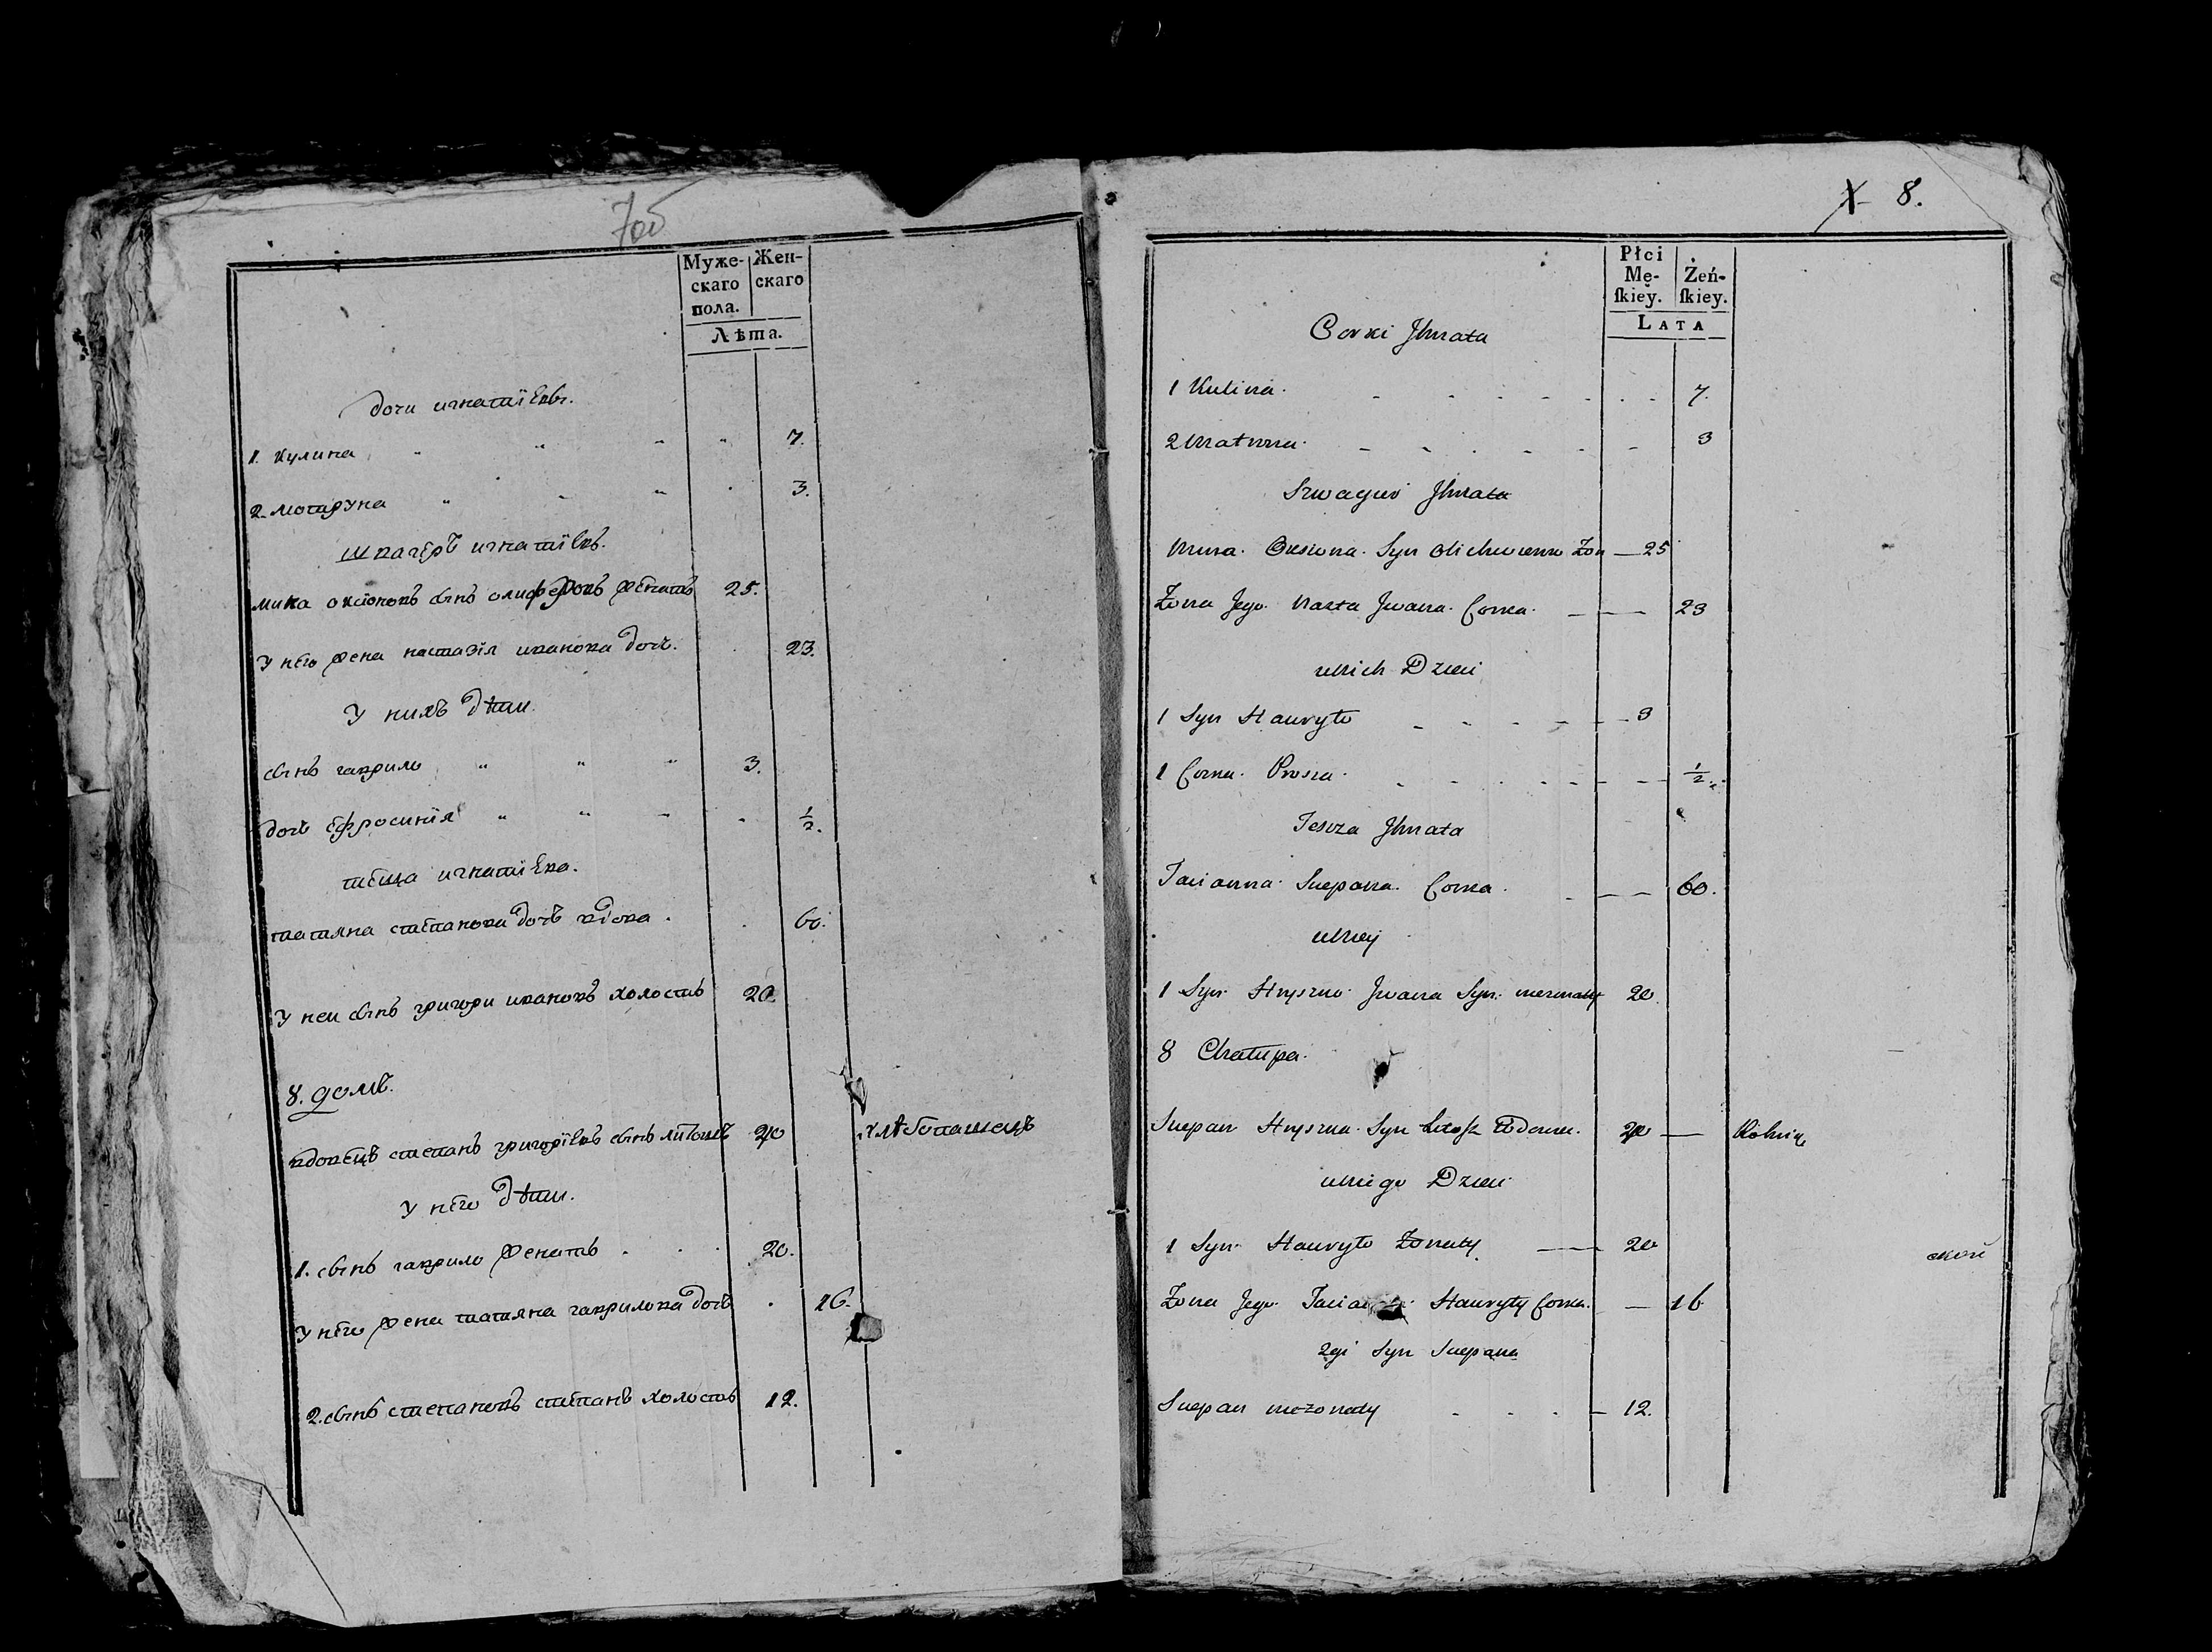 7об
Муже-
скаго
пола.
Жен-
скаго
Лѣта.
дочи игнатіевы.
1. кулина 7.
2. мотруна 3.
швагеръ игнатіевъ.
мика оксіоновъ сынъ олиферовъ женатъ 25.
у него жена настазія иванова дочь. 23.
у нихъ дѣти.
сынъ гаврило 3.
дочь ефросинія ½.
теща игнатіева.
татяна степанова дочь вдова. 60.
у неи сынъ григори ивановъ холостъ 20.
8. домъ.
вдовецъ степанъ григоріевъ сынъ 40 хлѣбопашецъ
у него дѣти.
1. сынъ гаврило женатъ 20.
у него жена татяна гаврилова дочь 16.
2. сынъ степановъ степанъ холостъ 12.
8.
Płci
Mę-
ſkieẏ.
Żeń-
ſkiey.
LATA
Corki Jhnata
1 Kulina. 7.
2 Matruna. 3
Szwagier Jhnata
Mina. Oxiona. Syn Zon 25
Zona Jego. Nasta Jwana. Corka. 23
u nich Dzieci
1 Syn Hauryło 3
1 Corka. Prosia. ½.
Tescza Jhnata
Tacianna. Stepana. Corka. 60.
u Niey
1 Syn. Hryszko. Jwana Syn. niezonaty 20.
8 Chałupa.
Stepan Hryszka. Syn Wdowiec. 40 Rolnik
u niego Dzieci
1 Syn. Hauryło Zonaty 20
Zona Jego. Hauryły Corka. 16
2gi Syn Stepana
Stepan niezonaty 12.
ской